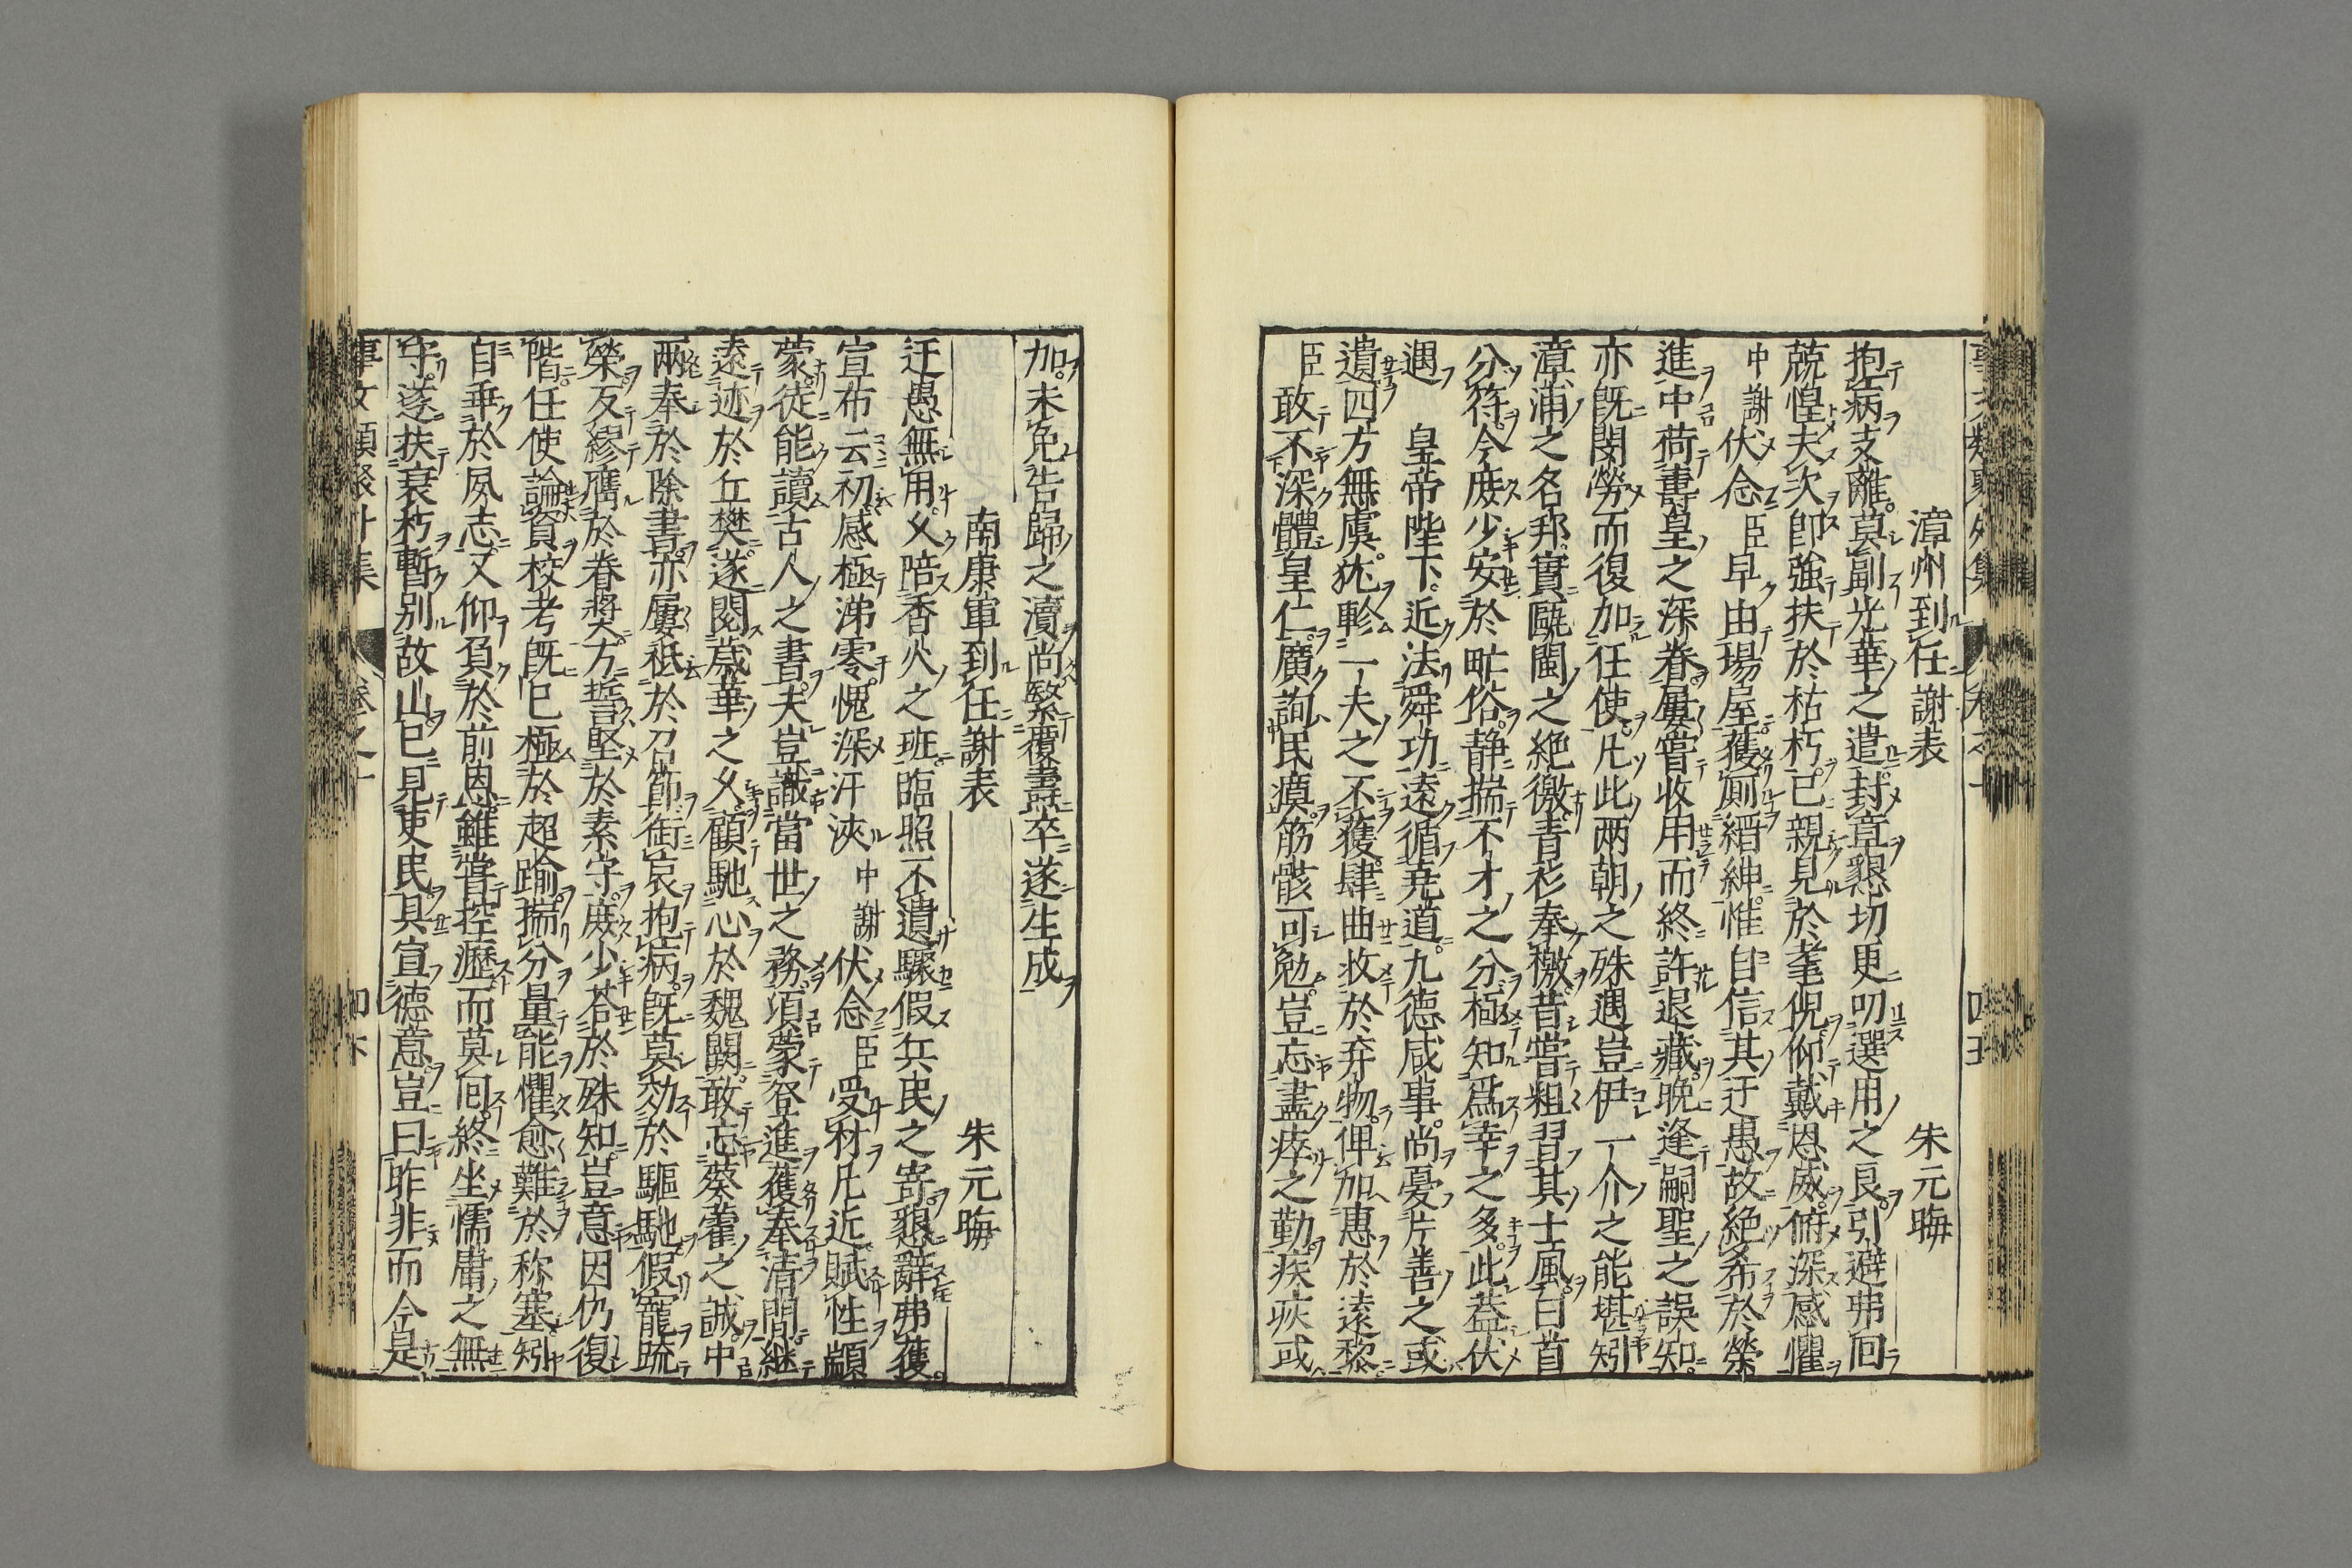 漳州到任謝表　朱元晦
抱病支離莫副光華之遣封章懇切更叨選用之良引避弗囘
兢惶夫次卽強扶於枯朽已親見於耄倪仰戴恩威俯深感懼
中謝伏念臣早由場屋獲厠縉紳惟自信其迂愚故絶希於榮
進中荷壽皇之深眷屢甞收用而終許退藏晩逢嗣聖之誤知
亦既閔勞而復加任使凡此兩朝之殊遇豈伊一介之能堪矧
漳浦之名邦實甌閩之絶徼青衫奉檄昔甞粗習其士風白首
分符今庶少安於甿俗静揣不才之分極知爲幸之多此葢伏
遇　皇帝陛下近法舜功遠循堯道九德咸事尚憂片善之或
遺四方無虞猶軫一夫之不獲肆曲收於弃物俾加惠於遠黎
臣敢不深體皇仁廣詢民瘼筋骸可勉豈忘盡瘁之勤疾疢或
加未免告歸之瀆尚繄覆燾卒遂生成
南康軍到任謝表　朱元晦
迂愚無用乆陪香火之班臨照不遺驟假兵民之寄懇辭弗獲
宣布云初感極涕零愧深汗浹中謝伏念臣受材凡近賦性顓
蒙徒能讀古人之書夫豈識當世之務項蒙登進獲奉清閒継
遠迹於丘樊遂閱歲華之乆顧馳心於魏闕敢忘葵藿之誠中
兩奉於除書亦屢祗於召節銜哀抱病既莫効於驅馳假寵䟽
榮反繆膺於眷奬方誓堅於素守庶少荅於殊知豈意因仍復
階任使論資校考既已極於超踰揣分量能懼愈難於称塞矧
自乖於夙志又仰負於前恩雖甞控瀝而莫囘終坐懦庸之無
守遂扶衰朽暫别故山已見吏民具宣德意豈曰昨非而今是